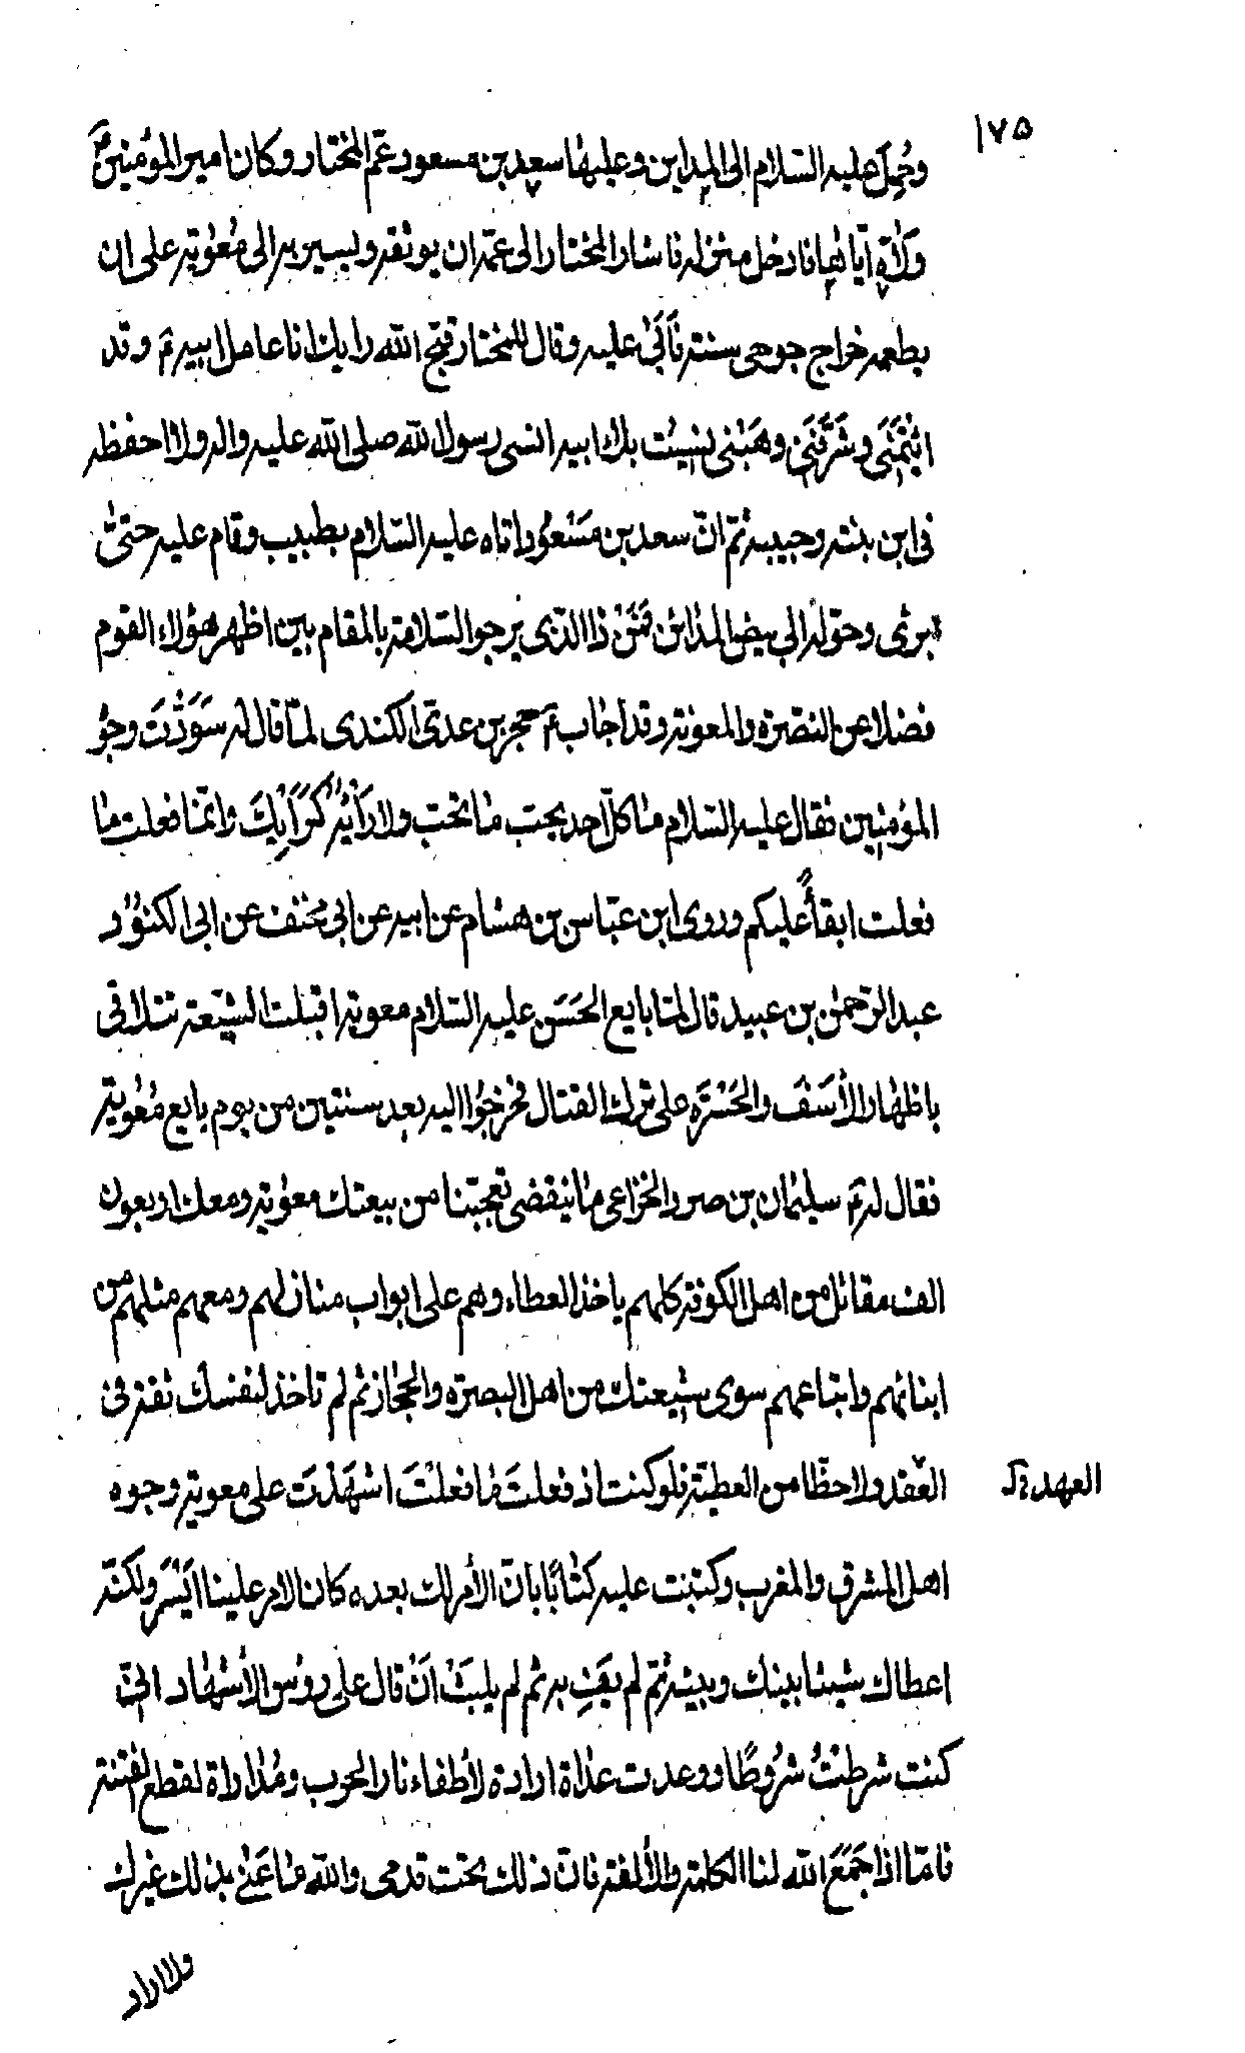 ١٧٥
وحُمِلَ عليه السّلام الى المداين وعليها سعيد بن مسعود عمّ المختار وكان امير المؤمنين ع
ولّاه ايّاها فادخل منزله فاشار المختار الى عمّه ان يوثقه ويسير به الى معوية على ان
يطعمه خراج جوحى سنة فاَبىٰ عليه وقال للمختار قبّح الله رايك انا عامل ابيه ع وقد
ائتمننى وشَرَّفَنى وهَبنى نسيت بلاء ابيه انسى رسول الله صلى الله عليه واله ولا احفظه
فى ابن بنته وحبيبه ثمّ انّ سعد بن مَسْعُود اتاه عليه السّلام بطبيب وقام عليه حتىّٰ
برئ وحوّله الى بيض المداين فمَنْ ذا الذى يَرجوا السّلامة بالمقام بين اظهر هؤلاء القوم
فضلا عن النصّرة والمعونة وقد اجاب ع حجر بن عدىّ الكندى لمّا قال له سَوَّدْتَ وجُوُ
المؤمنين فقال عليه السّلام ما كلّ احد يحبّ ما تحبّ ولا رَاْيُهُ كَرَاْيِكَ وانّما فعلت ما
فعلت ابقاءً عليكم وروى ابن عبّاس بن هشام عن ابيه عن ابى مخنف عن ابى الكنوُد
عبد الرّحمٰن بن عبيد قال لمّا بايع الحَسَن عليه السّلام معوية اقبلت الشّيعة تتلاقى
باظهار الأسَف والحَسْرَة على ترك القتال فخرَجُوا اليه بعد سنتين من يوم بايع مُعٰوية
فقال له ع سليمٰان بن صرد الخزاعى ما ينقضى تعجبّنا من بيعتك معوية ومعك اربعون
الف مقاتل من اهل الكوفة كلهم ياخذ العطاء وهم على ابواب منازلهم ومعهم مثلهم من
ابنائهم واتباعهم سوى شيعتك من اهل البصرة والحجاز ثم لم تاخذ لنفسك ثقة فى
العقد ولا حظّا من العطيّة فلو كنت اذ فعلتَ ما فعلتَ اشهَدْتَ على معوية وجوه
العهد
اهل المشرق والمغرب وكتبت عليه كتٰابًا بانّ الأمر لك بعده كان الامر علينا ايَسَر ولكنّه
اعطاك شيئا بينك وبينه ثمّ لم يَفِ به ثم لم يلبَثْ اَنْ قال على رؤس الأشهاد انّى
كنت شرطتُ شُروطًا ووعدت عداة ارادة لأطفاء نار الحرب ومُداراة لقطع الفتنة
فامّا اذا جَمَعَ الله لنا الكلمة والألفة فانّ ذلك تحت قدمى والله ما عَنىٰ بذلك غيرك
ولا اراد